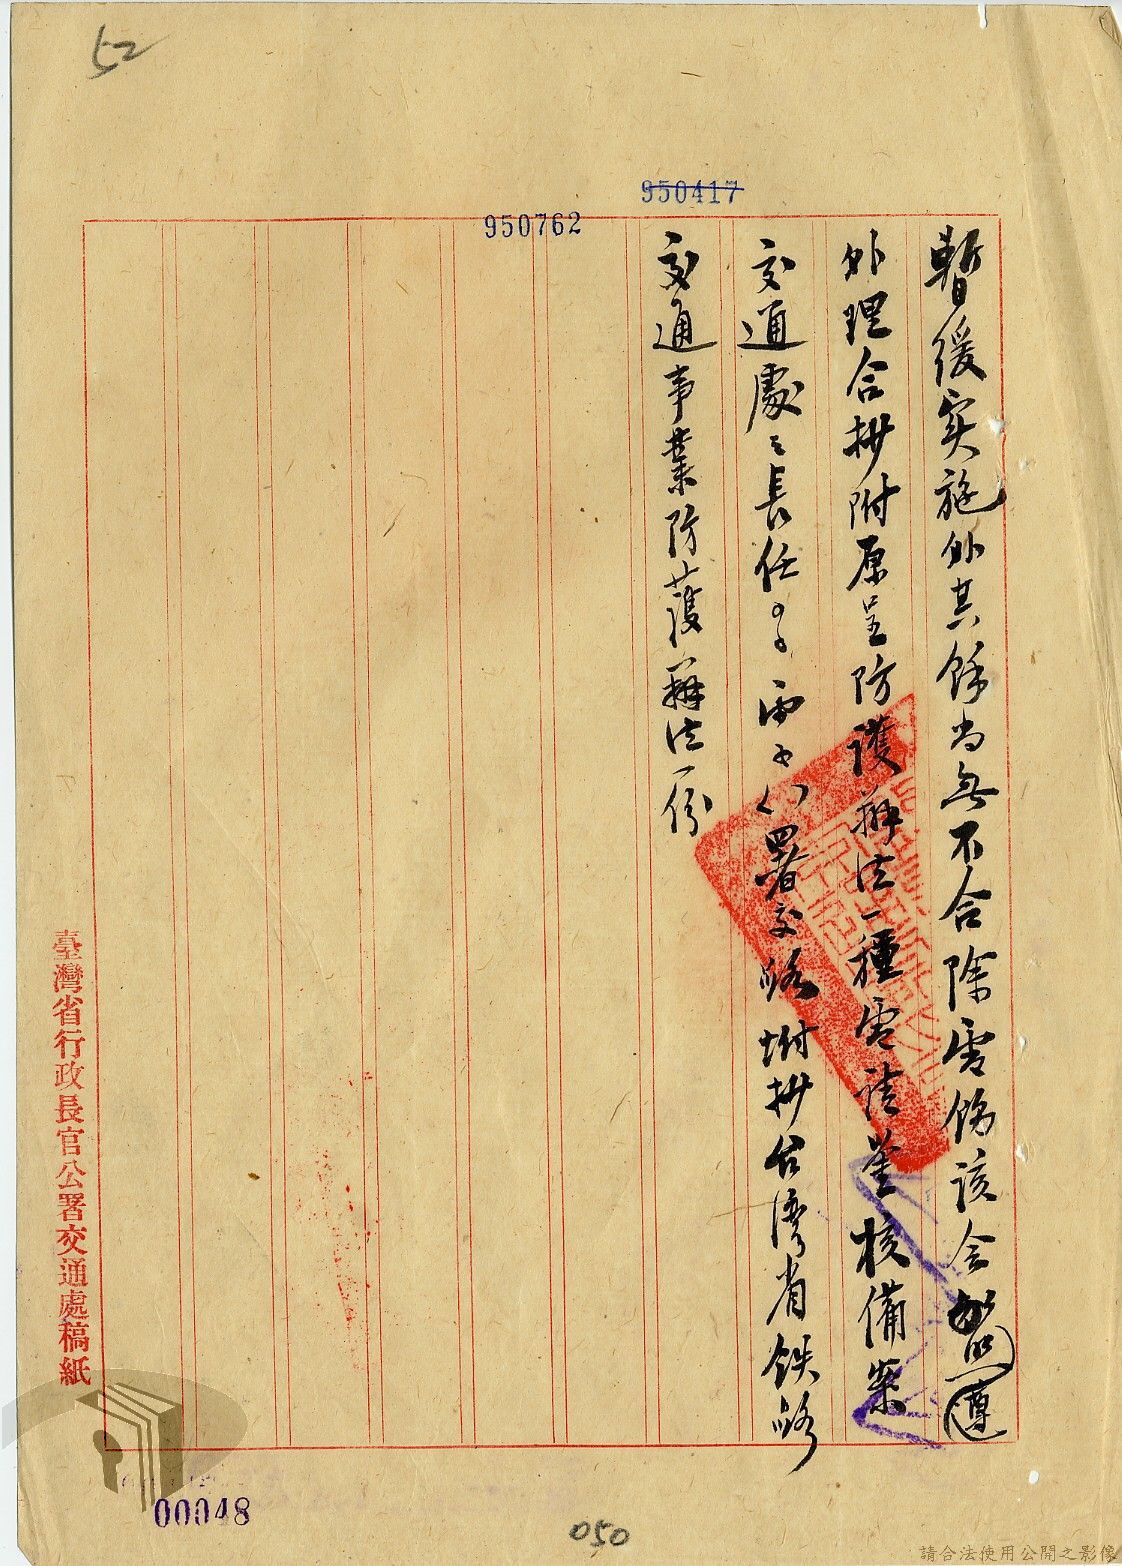 52
950417
950762
暫缓实施外其餘尚無不合除電飭该会知照遵
外理合抄附原呈防護辦法一種電请鉴核備案
交通處々長任 署交路坿抄台湾省鉄路
交通事業防護辦法一份
臺灣省行政長官公署交通處稿紙
00048
050
請合法使用公開之影像